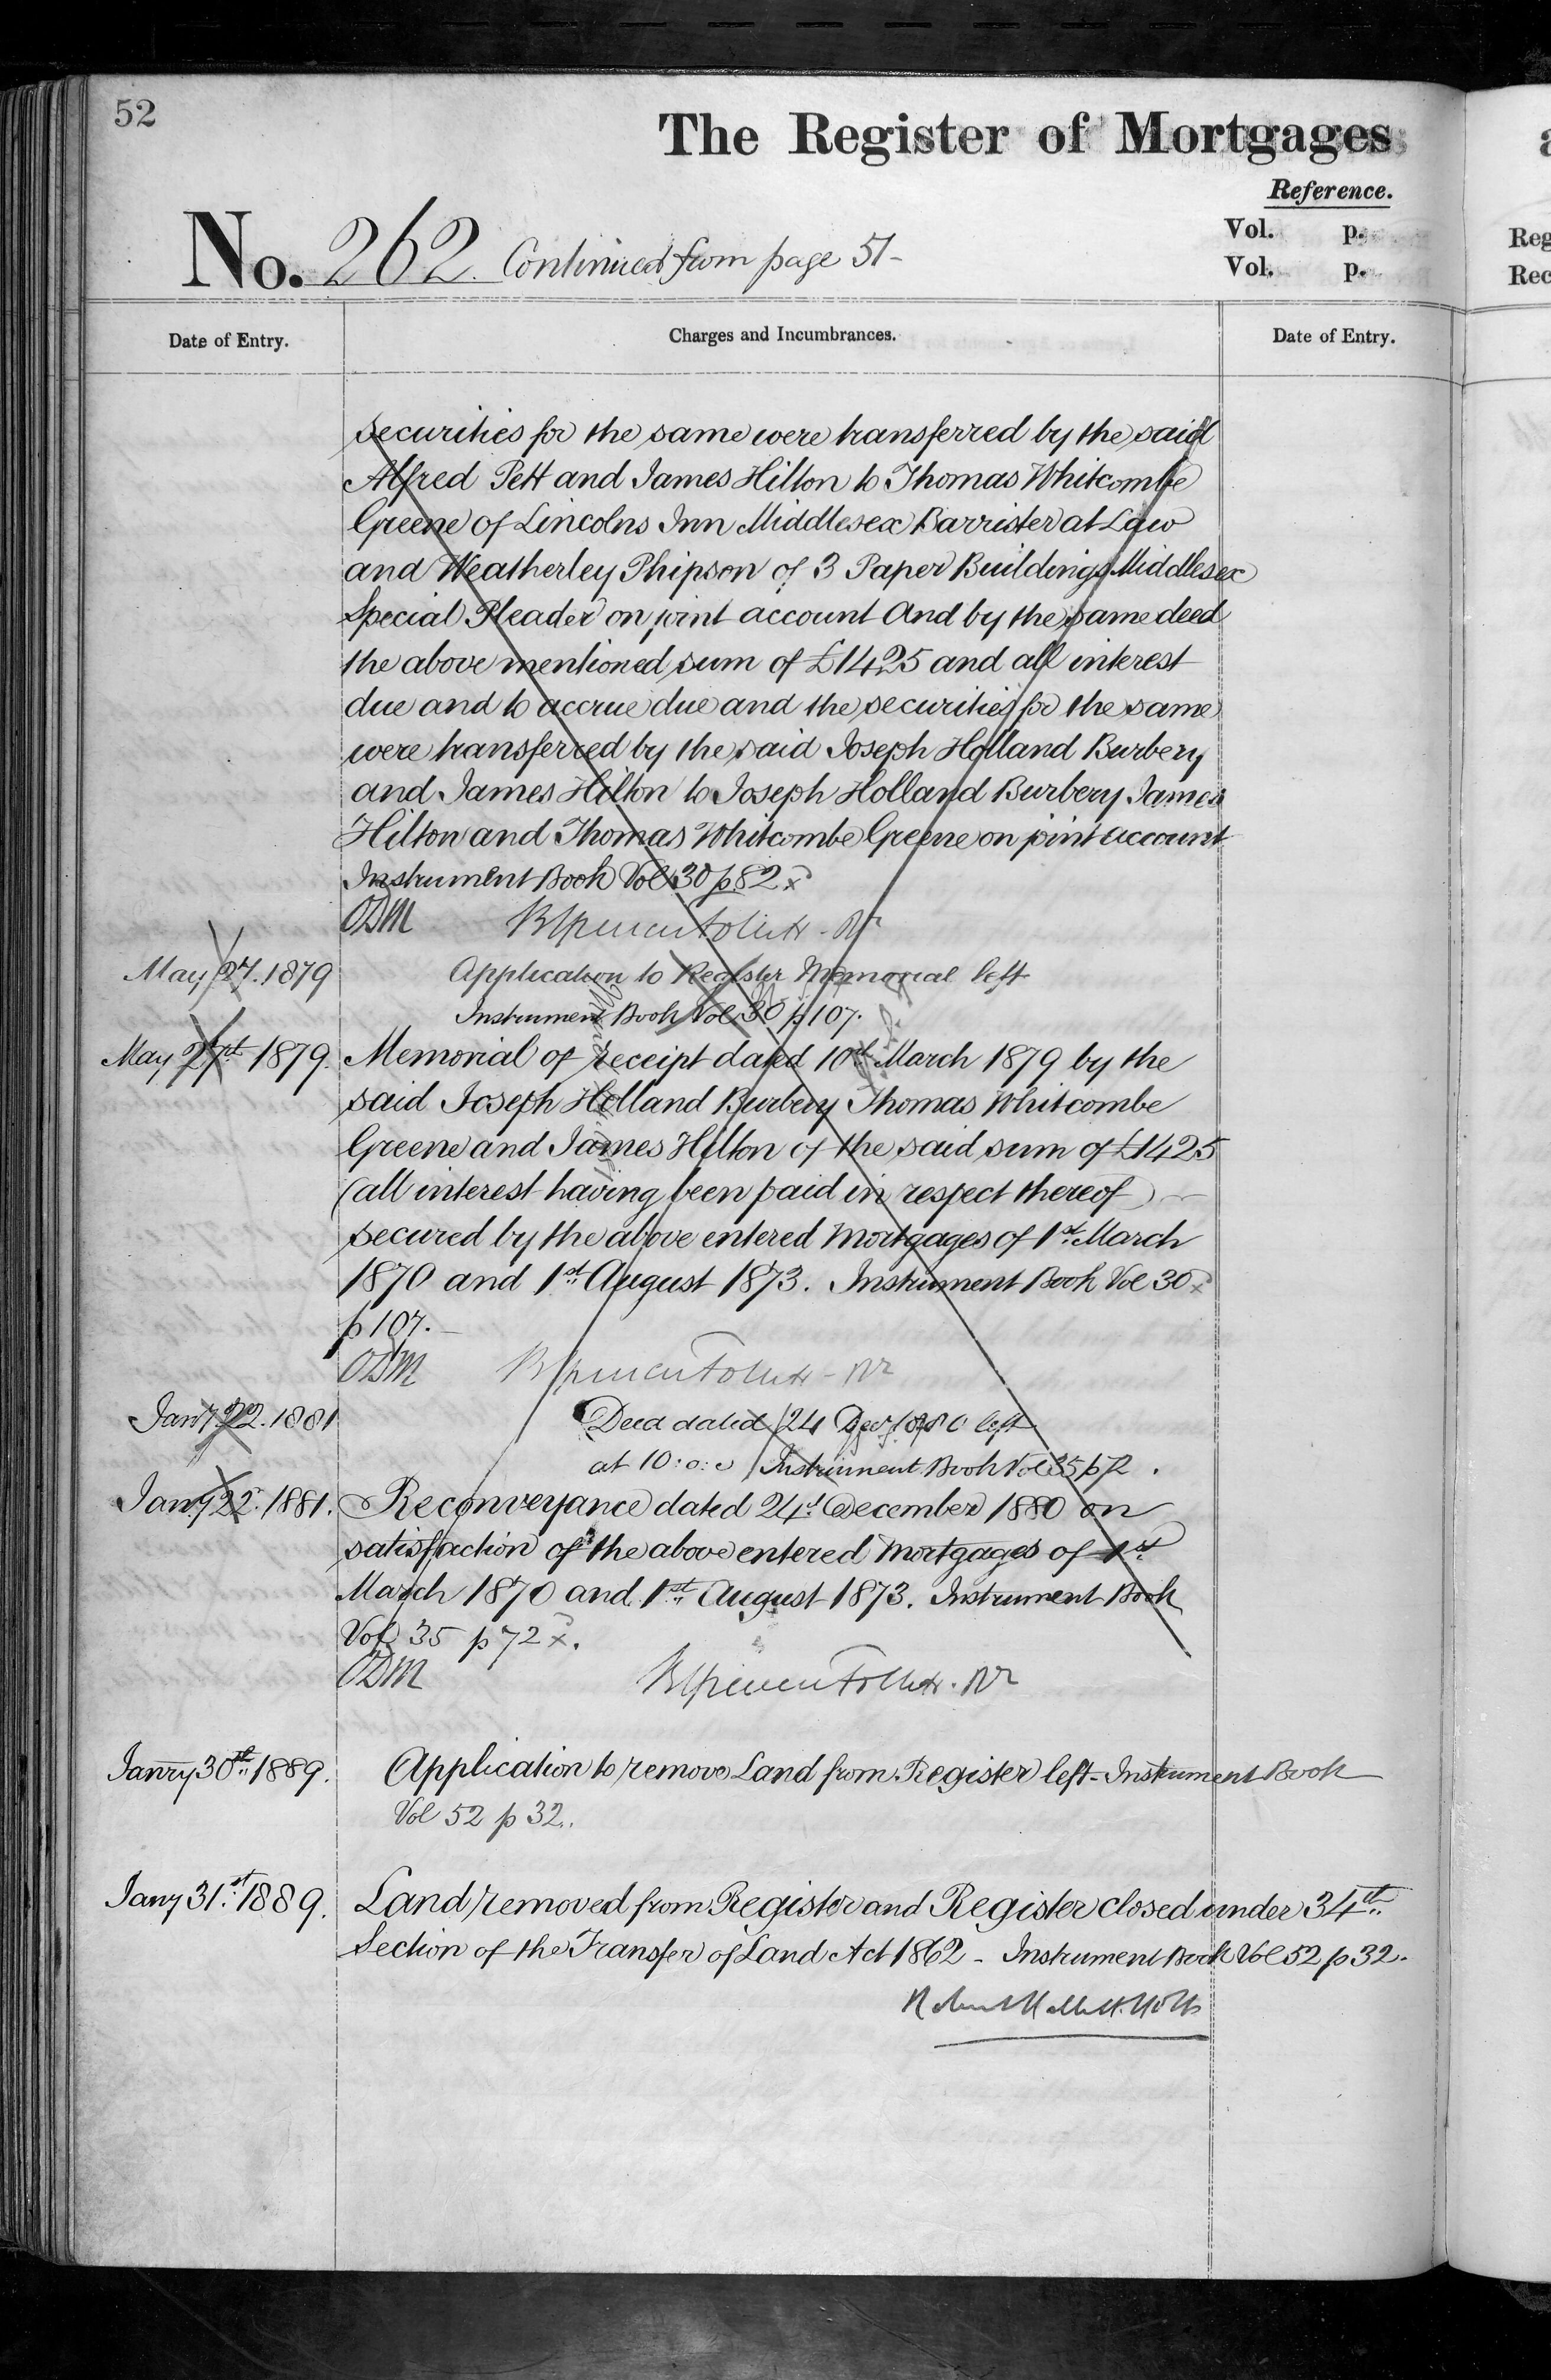 52
The Register of Mortgages
Reference.
Vol. p.
Vol. p.
No. 262 Continued from page 51-
Date of Entry.
Charges and Incumbrances.
Date of Entry.
securities for the same were transferred by the said
Alfred Pett and James Hilton to Thomas Whitcombe
Greene of Lincolns Inn Middlesex Barrister at Law
and Weatherley Phipson of 3 Paper Buildings Middlesex
Special Pleader on joint account And by the same deed
the above mentioned sum of £1425 and all interest
due and to accrue due and the securities for the same
were transferred by the said Joseph Holland Burbery
and James Hilton to Joseph Holland Burbery James
Hilton and Thomas Whitcombe Greene on joint account
Instrument Book Vol 30 p 82 x
ODM
May 27. 1879 Application to Register Memorial left
Instrument Book Vol 30 p 107.
May 27th 1879. Memorial of receipt dated 10th March 1879 by the
said Joseph Holland Burbery Thomas Whitcombe
Greene and James Hilton of the said sum of £1425
(all interest having been paid in respect thereof)
secured by the above entered Mortgages of 1st March
1870 and 1st August 1873. Instrument Book Vol 30 x
p 107.
ODM
Jany 22. 1881 Deed dated 24 Decr 1880 left
at 10:0:0 Instrument Book Vol 35 p 72.
Jany 22. 1881. Reconveyance dated 24th December 1880 on
satisfaction of the above entered Mortgages of 1st
March 1870 and 1st August 1873. Instrument Book
Vol 35 p 72 x.
ODM
Janry 30th 1889. Application to remove Land from Register left - Instrument Book
Vol 52 p 32.
Jany 31st 1889. Land removed from Register and Register closed under 34th
Section of the Transfer of Land Act 1862 - Instrument Book Vol 52 p 32.
Reg
Rec